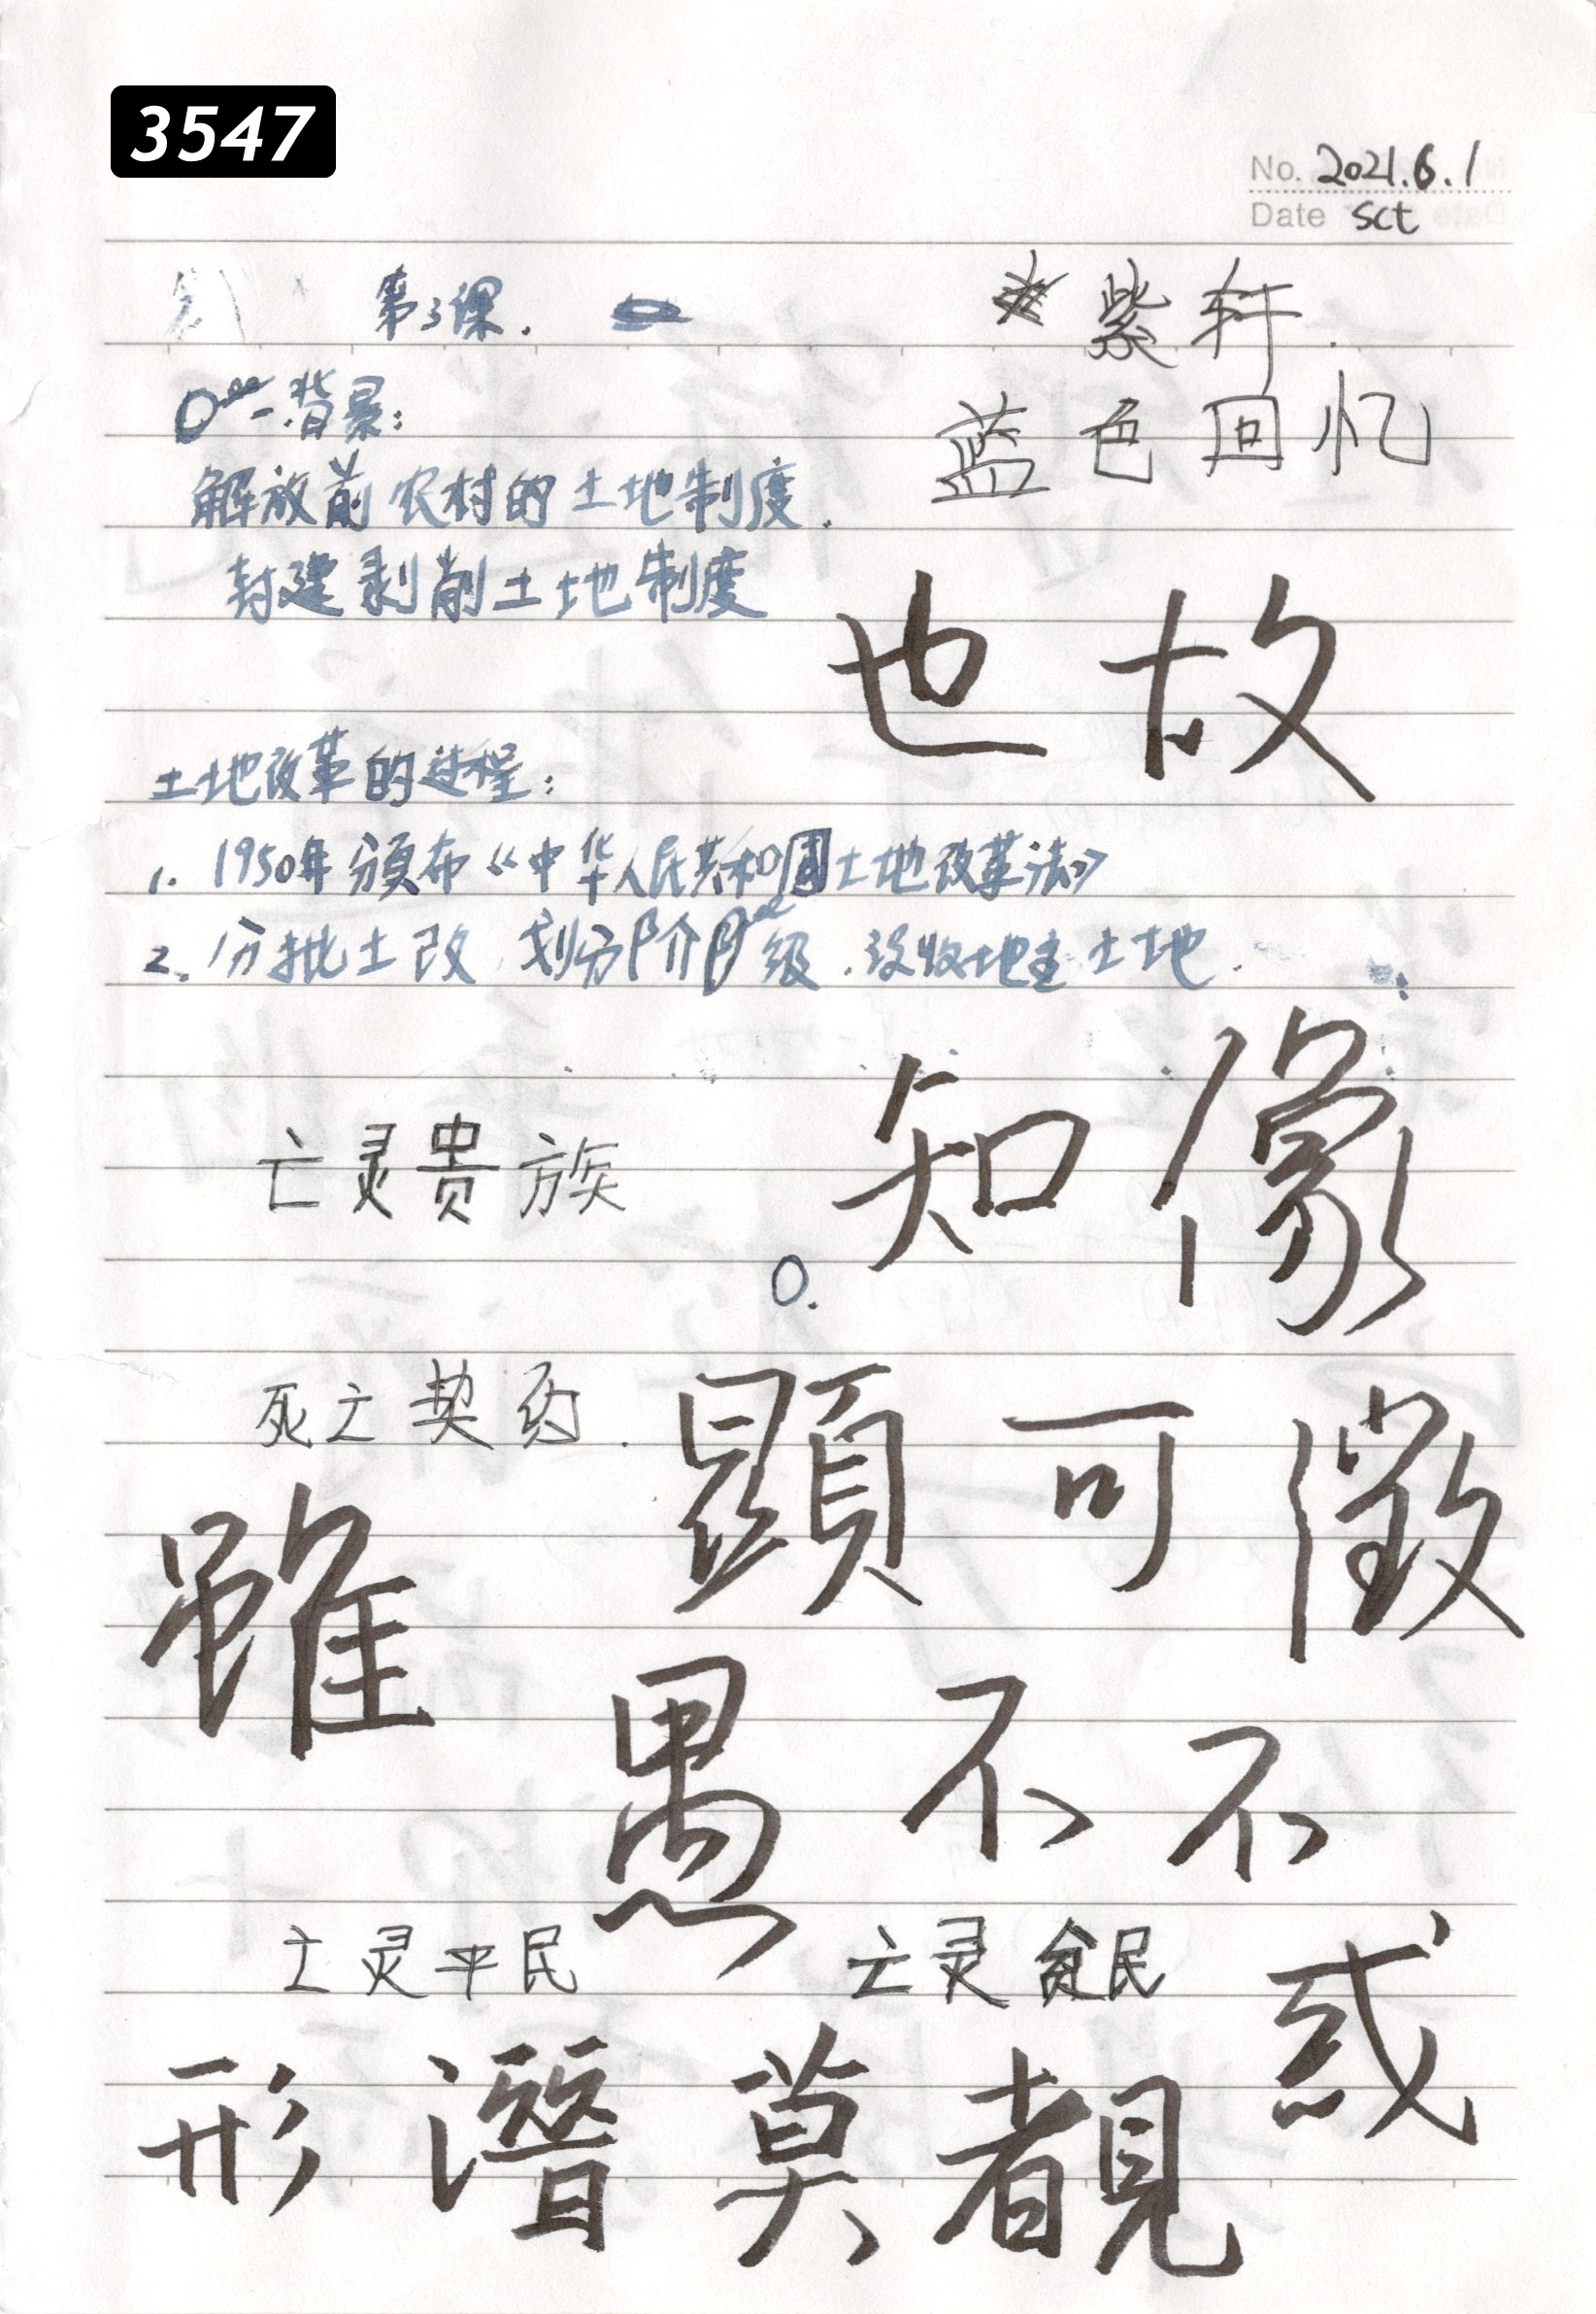 3547
No. 2021.6.1
Date sct
第3课.
紫轩.
一.背景:
蓝色回忆
解放前农村的土地制度.
封建剥削土地制度
也故
土地改革的过程:
1. 1950年颁布《中华人民共和国土地改革法》
2. 分批土改,划分阶级.没收地主土地.
知像
亡灵贵族
0.
死亡契约.
顯可徵
雖
愚不不
亡灵平民 亡灵贫民
惑
形潛莫覩